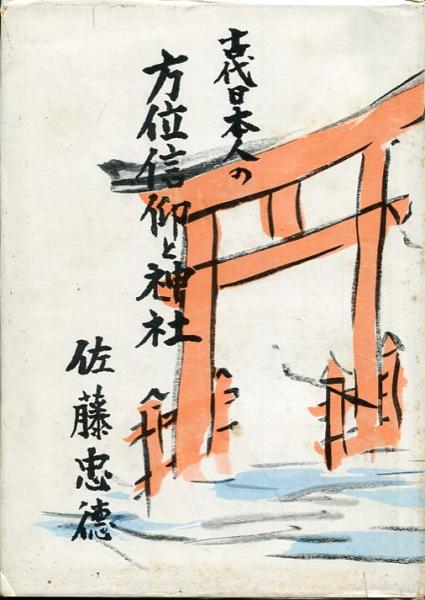 古代日本人の
方位信仰と神社
佐藤忠徳